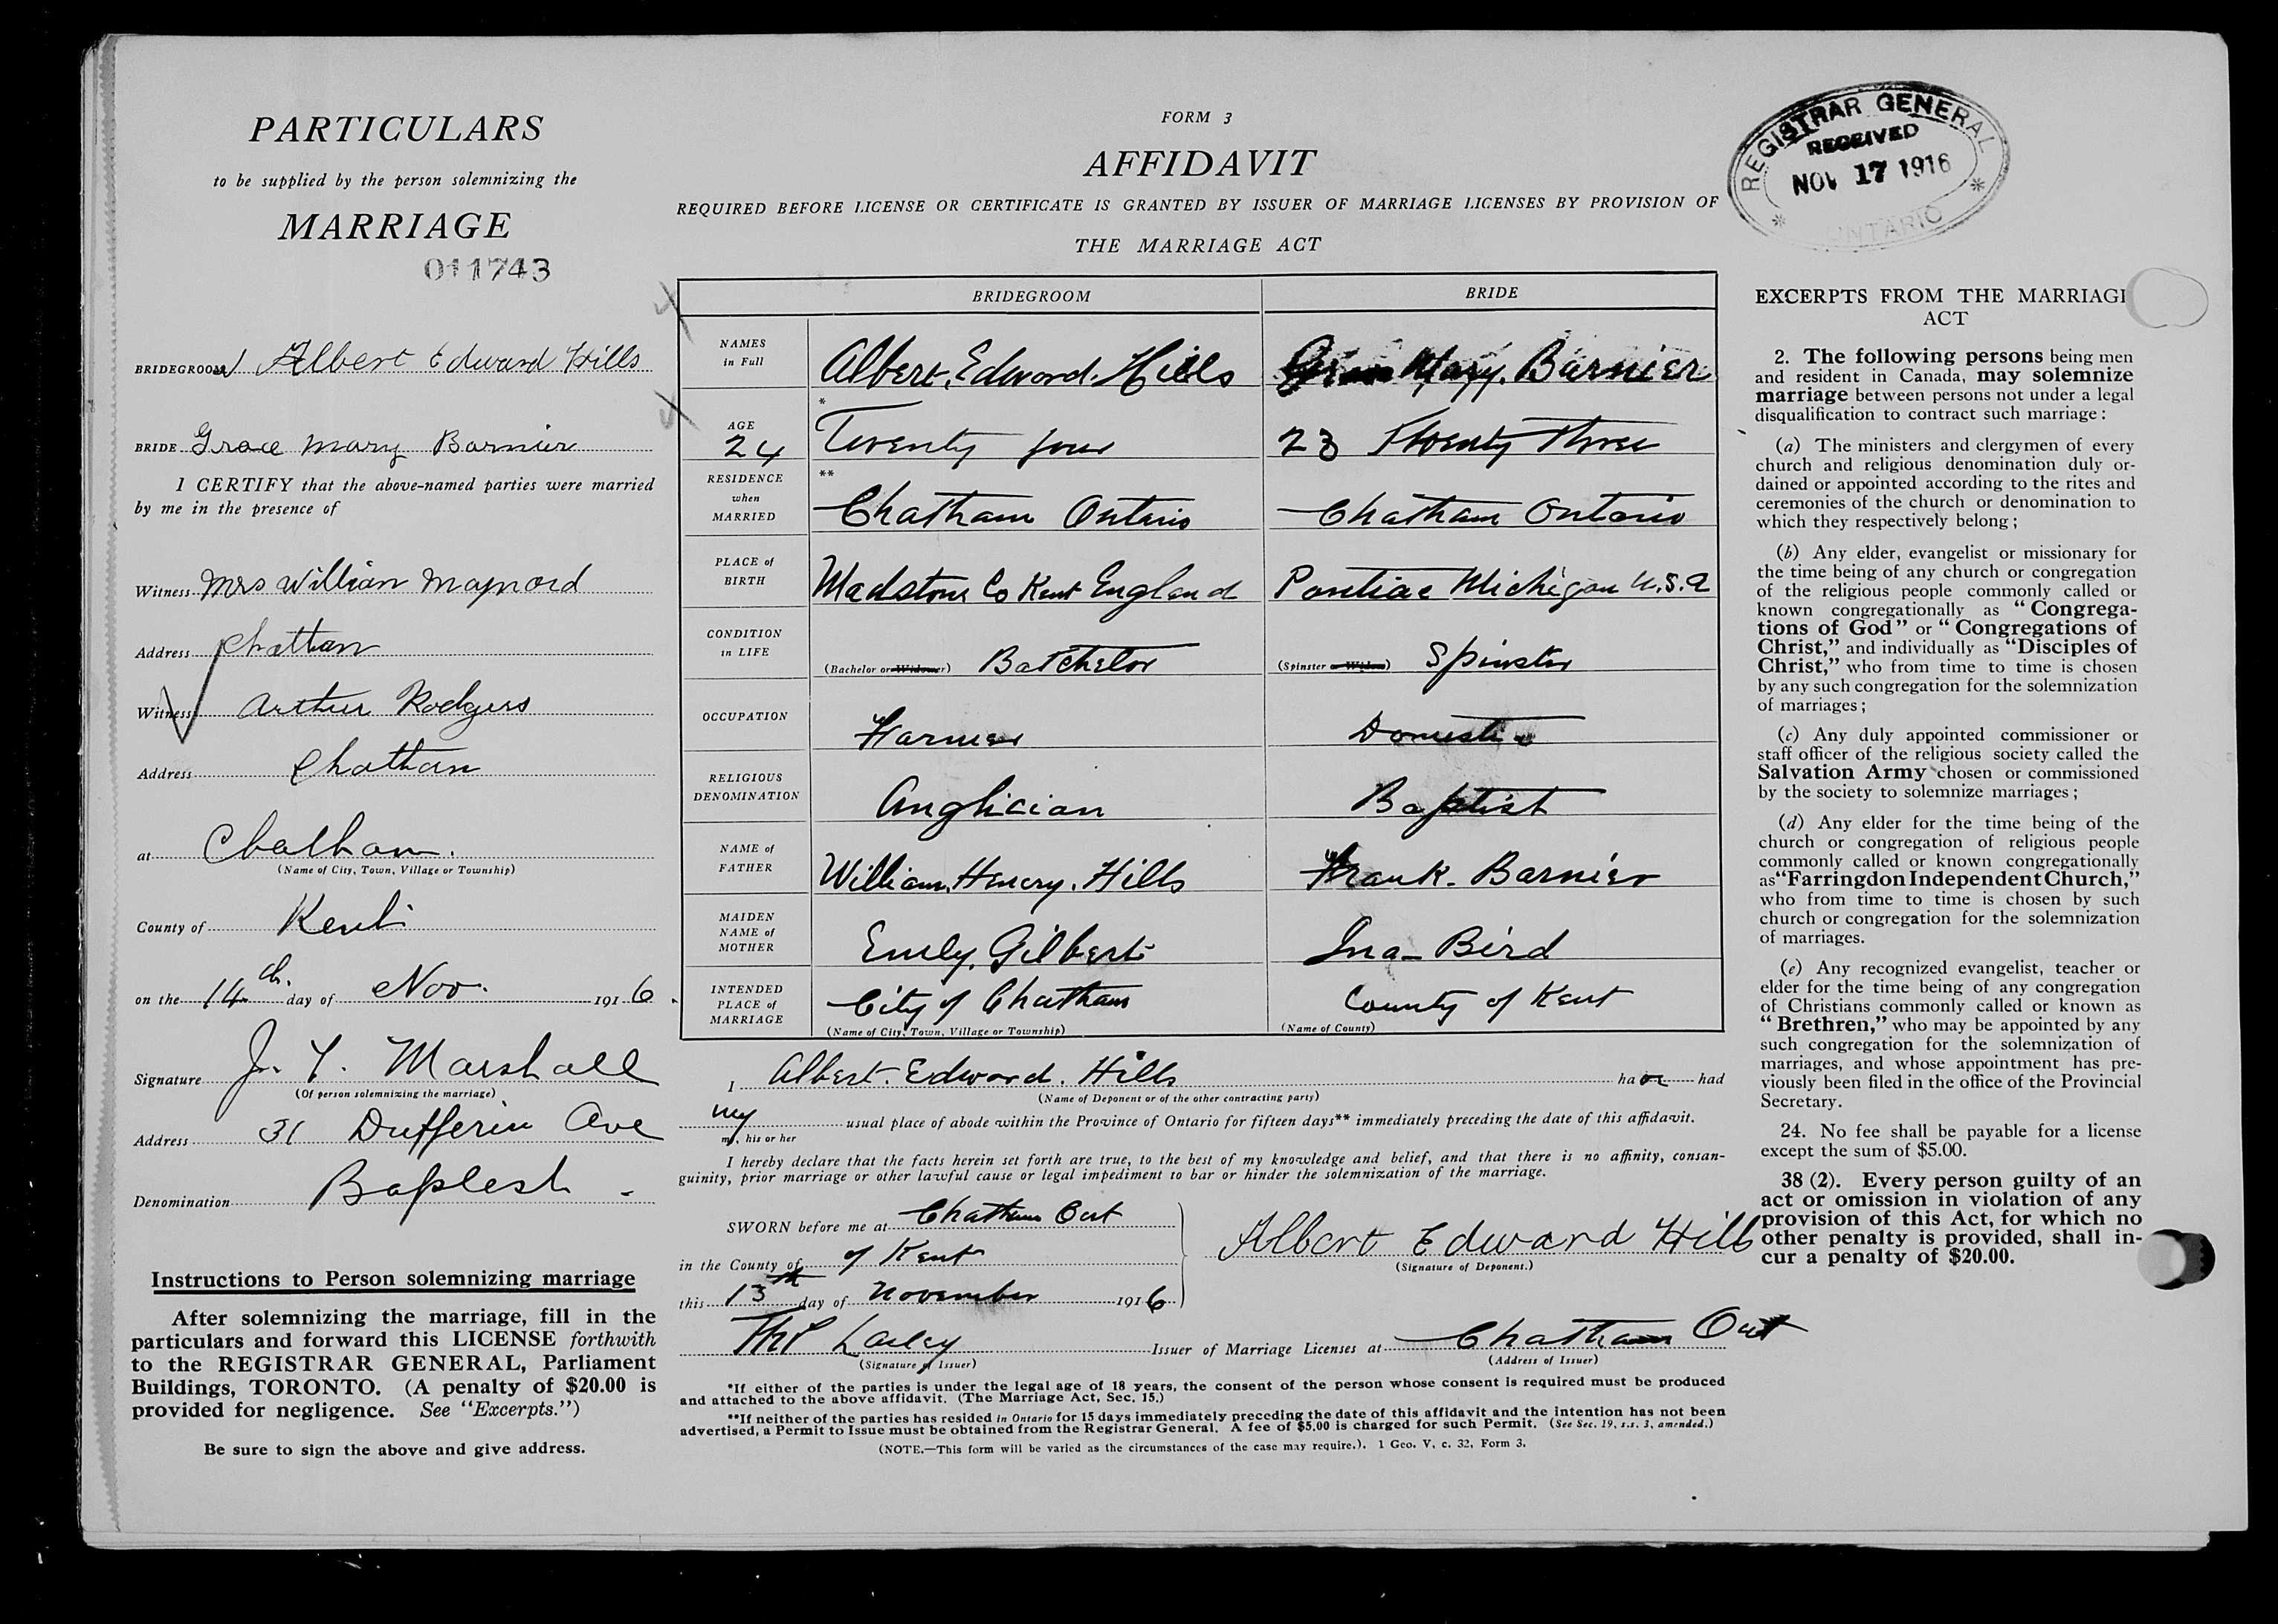 PARTICULARS
to be supplied by the person solemnizing the
MARRIAGE
011743
BRIDEGROOM Albert Edward Hills
BRIDE Grace Mary Barnier
I CERTIFY that the above-named parties were married
by me in the presence of
Witness Mrs William Maynord
Address Chattam
Witness Arthur Rodgers
Address Chatham
at Chatham.
(Name of City, Town, Village or Township)
County of Kent
on the 14th. day of Nov. 1916.
Signature J. Marshall
(Of person solemnizing the marriage)
Address 31 Dufferin Ave
Denomination Baptist
Instructions to Person solemnizing marriage
After solemnizing the marriage, fill in the
particulars and forward this LICENSE forthwith
to the REGISTRAR GENERAL, Parliament
Buildings, TORONTO. (A penalty of $20.00 is
provided for negligence. See "Excerpts.")
Be sure to sign the above and give address.
FORM 3
AFFIDAVIT
REQUIRED BEFORE LICENSE OR CERTIFICATE IS GRANTED BY ISSUER OF MARRIAGE LICENSES BY PROVISION OF
THE MARRIAGE ACT
BRIDEGROOM BRIDE
NAMES in Full Albert. Edward. Hills Grace Mary. Barnier
AGE 24 * Twenty four 23 Twenty Three
RESIDENCE when MARRIED ** Chatham Ontario Chatham Ontario
PLACE of BIRTH Madstone Co Kent England Pontiac Michigan U.S.A
CONDITION in LIFE (Bachelor or Widower) Batchelor (Spinster or Widow) Spinster
OCCUPATION Farmer Domestic
RELIGIOUS DENOMINATION Anglician Baptist
NAME of FATHER William. Henery. Hills Frank. Barnier
MAIDEN NAME of MOTHER Emely. Gilbert Ina Bird
INTENDED PLACE of MARRIAGE City of Chatham County of Kent
(Name of City, Town, Village or Township) (Name of County)
I Albert. Edward. Hills ha had
(Name of Deponent or of the other contracting party)
my usual place of abode within the Province of Ontario for fifteen days** immediately preceding the date of this affidavit.
my, his or her
I hereby declare that the facts herein set forth are true, to the best of my knowledge and belief, and that there is no affinity, consan-
guinity, prior marriage or other lawful cause or legal impediment to bar or hinder the solemnization of the marriage.
SWORN before me at Chatham Ont
in the County of of Kent
this 13th day of November 1916
Albert Edward Hills
(Signature of Deponent.)
Lailey Issuer of Marriage Licenses at Chatham Ont
(Signature of Issuer) (Address of Issuer)
*If either of the parties is under the legal age of 18 years, the consent of the person whose consent is required must be produced
and attached to the above affidavit. (The Marriage Act, Sec. 15.)
**If neither of the parties has resided in Ontario for 15 days immediately preceding the date of this affidavit and the intention has not been
advertised, a Permit to Issue must be obtained from the Registrar General. A fee of $5.00 is charged for such Permit. (See Sec. 19, s.s. 3, amended.)
(NOTE.—This form will be varied as the circumstances of the case may require.). 1 Geo. V, c. 32, Form 3.
REGISTRAR GENERAL
RECEIVED
NOV 17 1916
* ONTARIO *
EXCERPTS FROM THE MARRIAGE
ACT
2. The following persons being men
and resident in Canada, may solemnize
marriage between persons not under a legal
disqualification to contract such marriage:
(a) The ministers and clergymen of every
church and religious denomination duly or-
dained or appointed according to the rites and
ceremonies of the church or denomination to
which they respectively belong;
(b) Any elder, evangelist or missionary for
the time being of any church or congregation
of the religious people commonly called or
known congregationally as "Congrega-
tions of God" or "Congregations of
Christ," and individually as "Disciples of
Christ," who from time to time is chosen
by any such congregation for the solemnization
of marriages;
(c) Any duly appointed commissioner or
staff officer of the religious society called the
Salvation Army chosen or commissioned
by the society to solemnize marriages;
(d) Any elder for the time being of the
church or congregation of religious people
commonly called or known congregationally
as "Farringdon Independent Church,"
who from time to time is chosen by such
church or congregation for the solemnization
of marriages.
(e) Any recognized evangelist, teacher or
elder for the time being of any congregation
of Christians commonly called or known as
"Brethren," who may be appointed by any
such congregation for the solemnization of
marriages, and whose appointment has pre-
viously been filed in the office of the Provincial
Secretary.
24. No fee shall be payable for a license
except the sum of $5.00.
38 (2). Every person guilty of an
act or omission in violation of any
provision of this Act, for which no
other penalty is provided, shall in-
cur a penalty of $20.00.